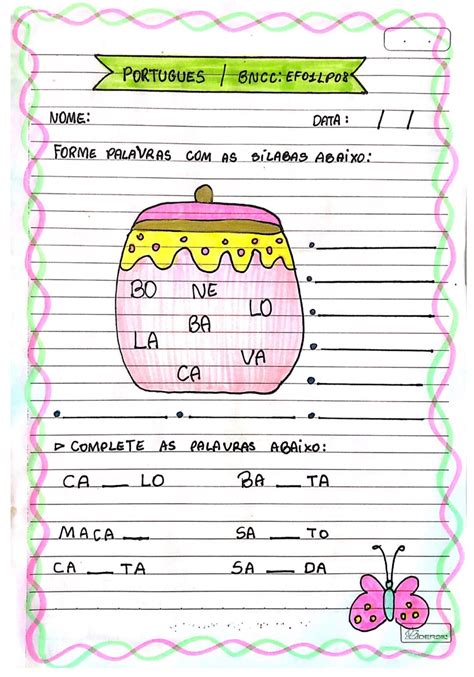 PORTUGUES / BNCC: EF01LP08
NOME: DATA: / /
FORME PALAVRAS COM AS SÍLABAS ABAIXO:
BO NE
LO
BA
LA
VA
CA
▷ COMPLETE AS PALAVRAS ABAIXO:
CA __ LO BA __ TA
MACA __ SA __ TO
CA __ TA SA __ DA